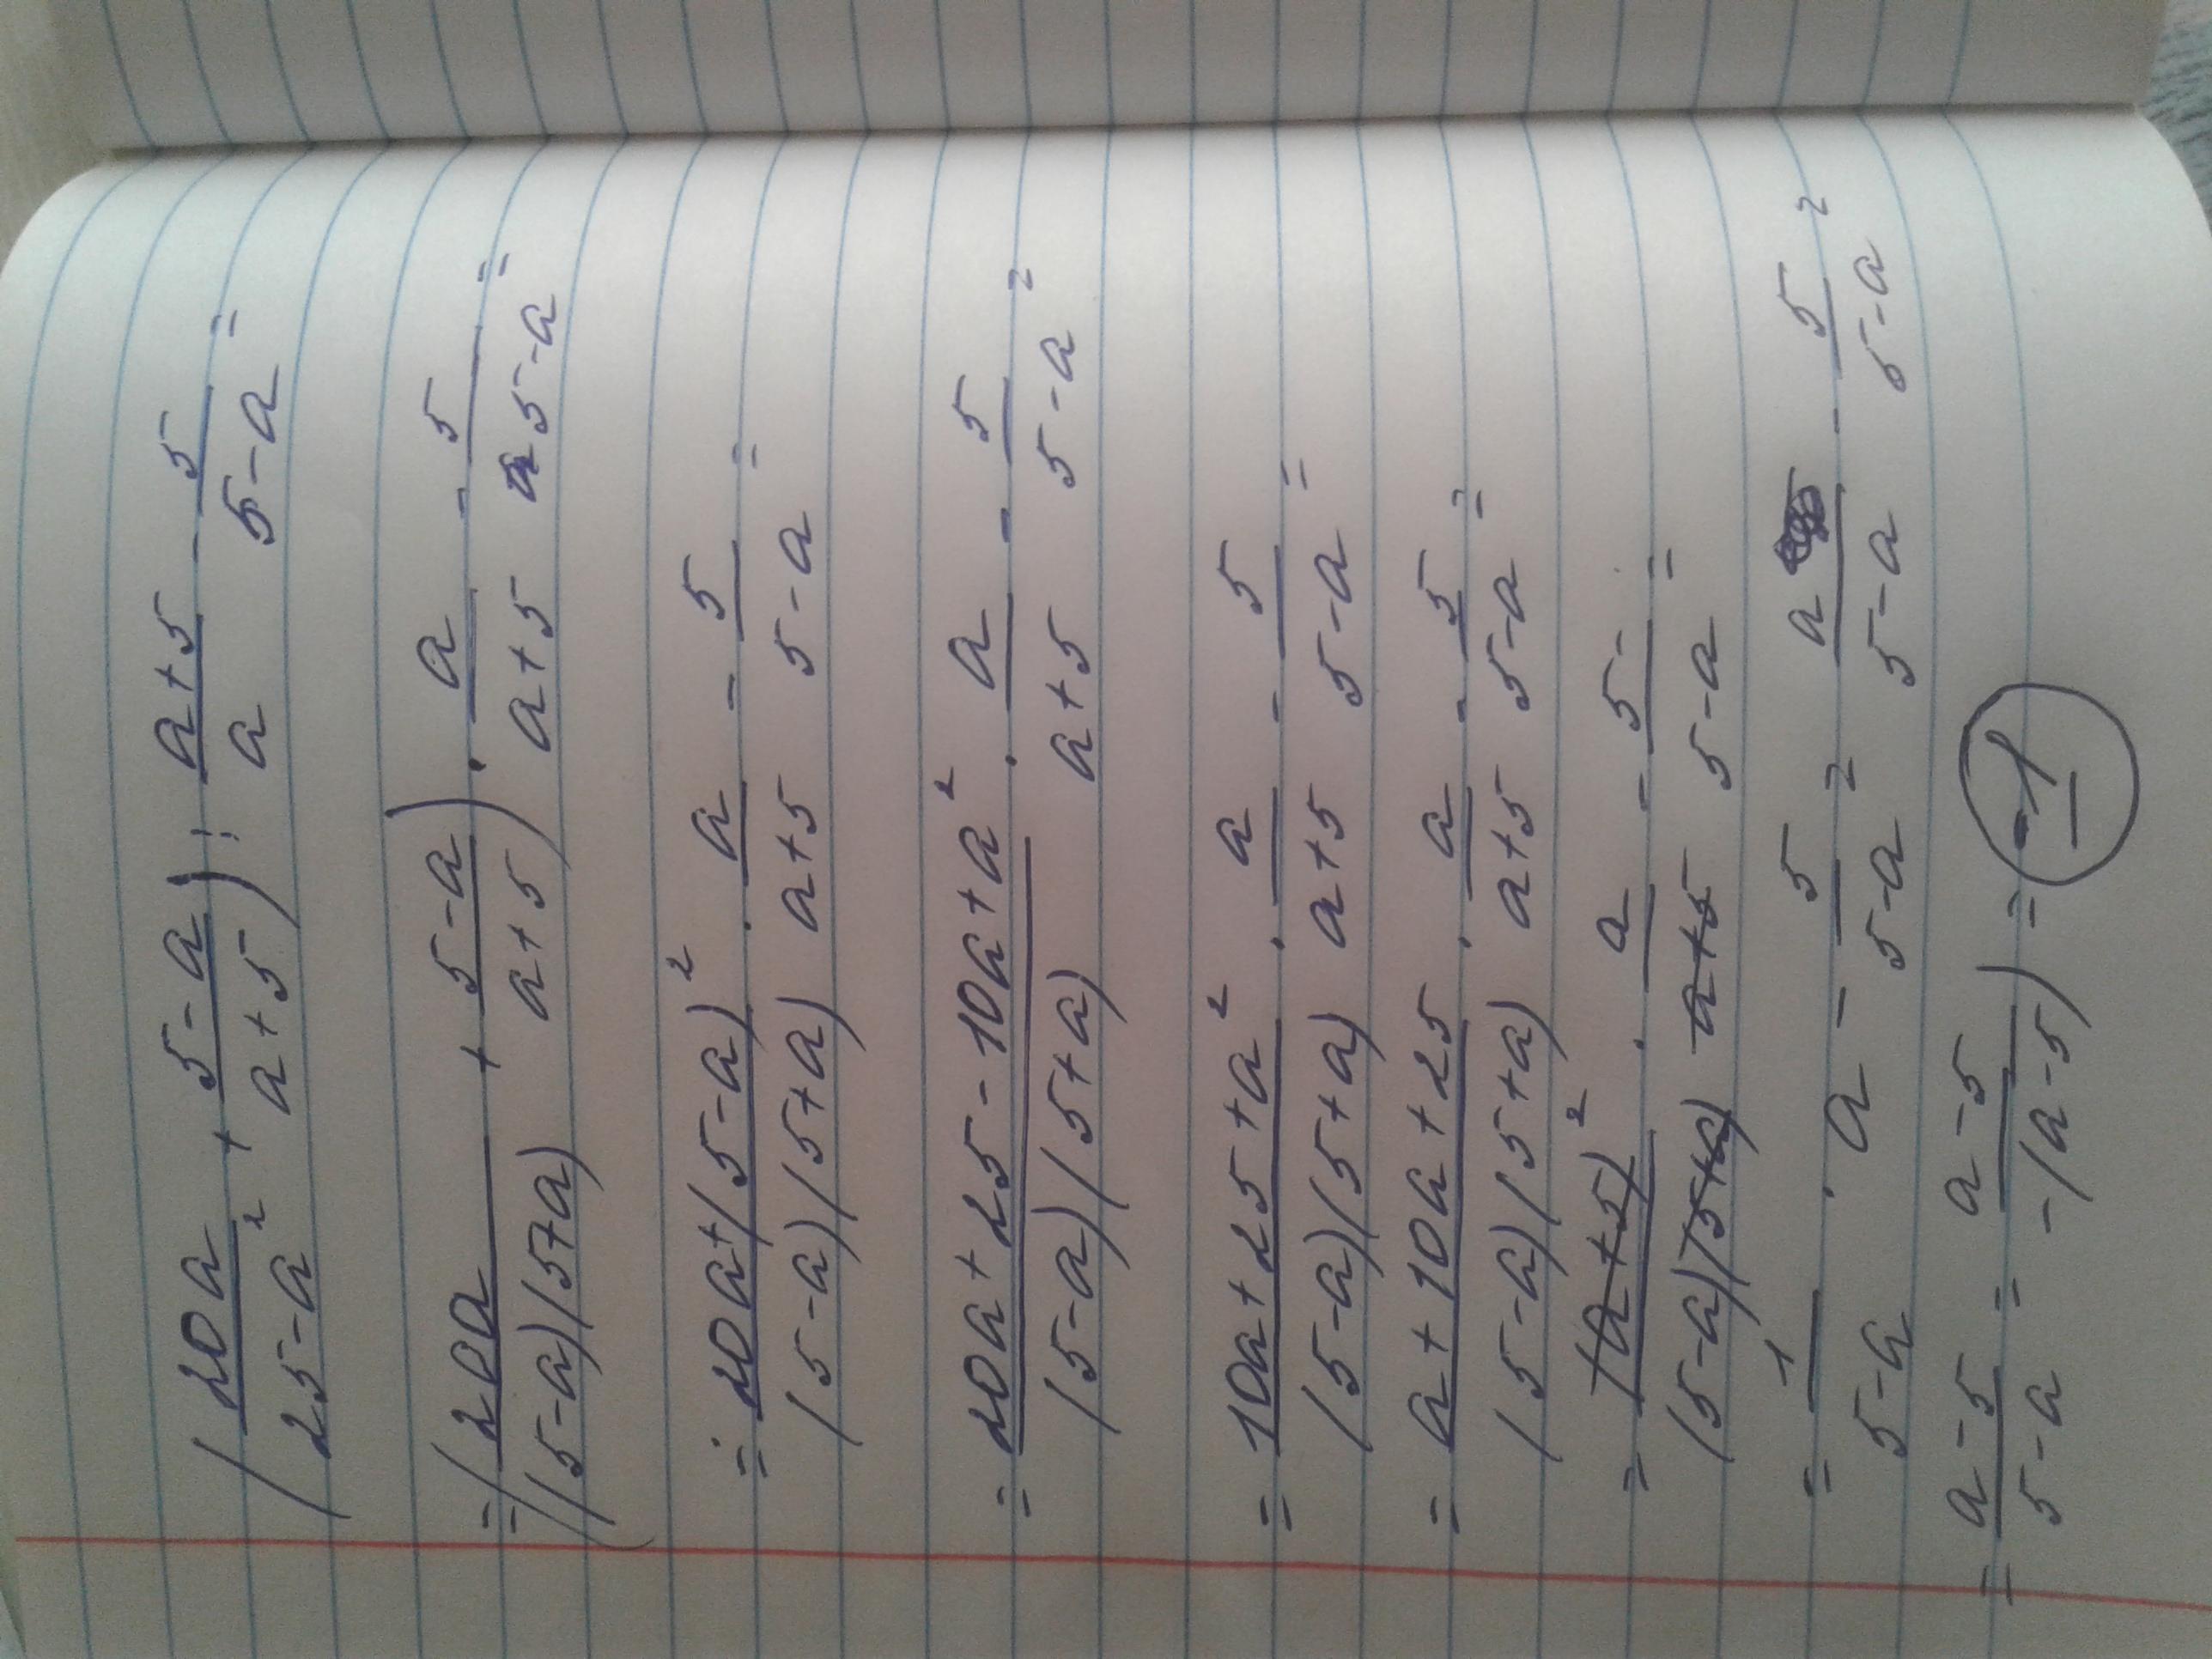 (20a/(25-a²) + (5-a)/(a+5)) : (a+5)/a - 5/(5-a) =
= (20a/((5-a)(5+a)) + (5-a)/(a+5)) · a/(a+5) - 5/(5-a) =
= (20a+(5-a)²)/((5-a)(5+a)) · a/(a+5) - 5/(5-a) =
= (20a+25-10a+a²)/((5-a)(5+a)) · a/(a+5) - 5/(5-a) =
= (10a+25+a²)/((5-a)(5+a)) · a/(a+5) - 5/(5-a) =
= (a+10a+25)/((5-a)(5+a)) · a/(a+5) - 5/(5-a) =
= (a+5)²/((5-a)(5+a)) · a/(a+5) - 5/(5-a) =
= 1/(5-a) · a - 5/(5-a) = a/(5-a) - 5/(5-a) =
= (a-5)/(5-a) = (a-5)/(-(a-5)) = -1